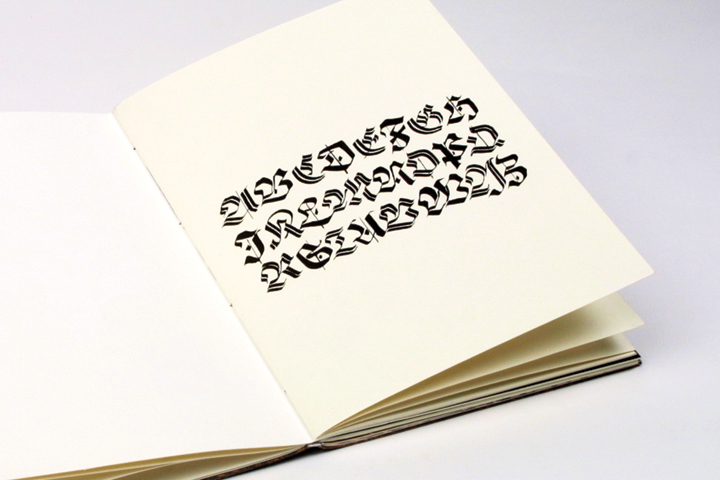 ABCDEFGH
JKLMNOPQ
RSTUVWXYZ